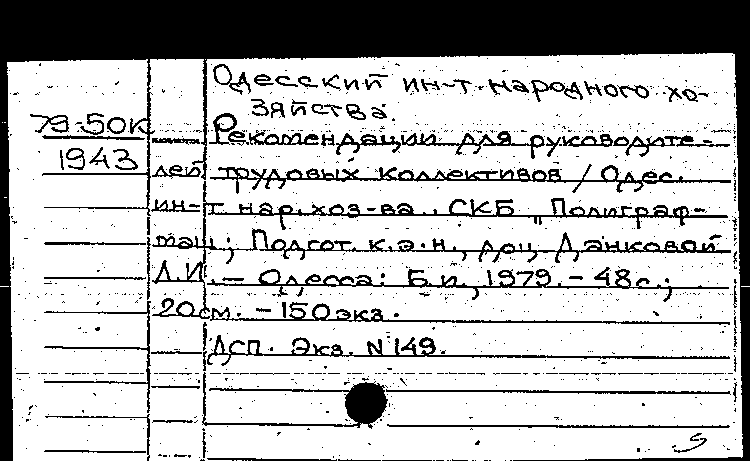 Одесский ин-т народного хо-
зяйства.
79-50К
Рекомендации для руководите-
1943
лей трудовых коллективов / Одес.
ин-т нар. хоз-ва, СКБ "Полиграф-
маш"; Подгот. к.э.н., доц. Данковой
Л.И. — Одесса: Б.и., 1979. – 48 с.;
20 см. – 150 экз.
ДСП. Экз. N 149.
5